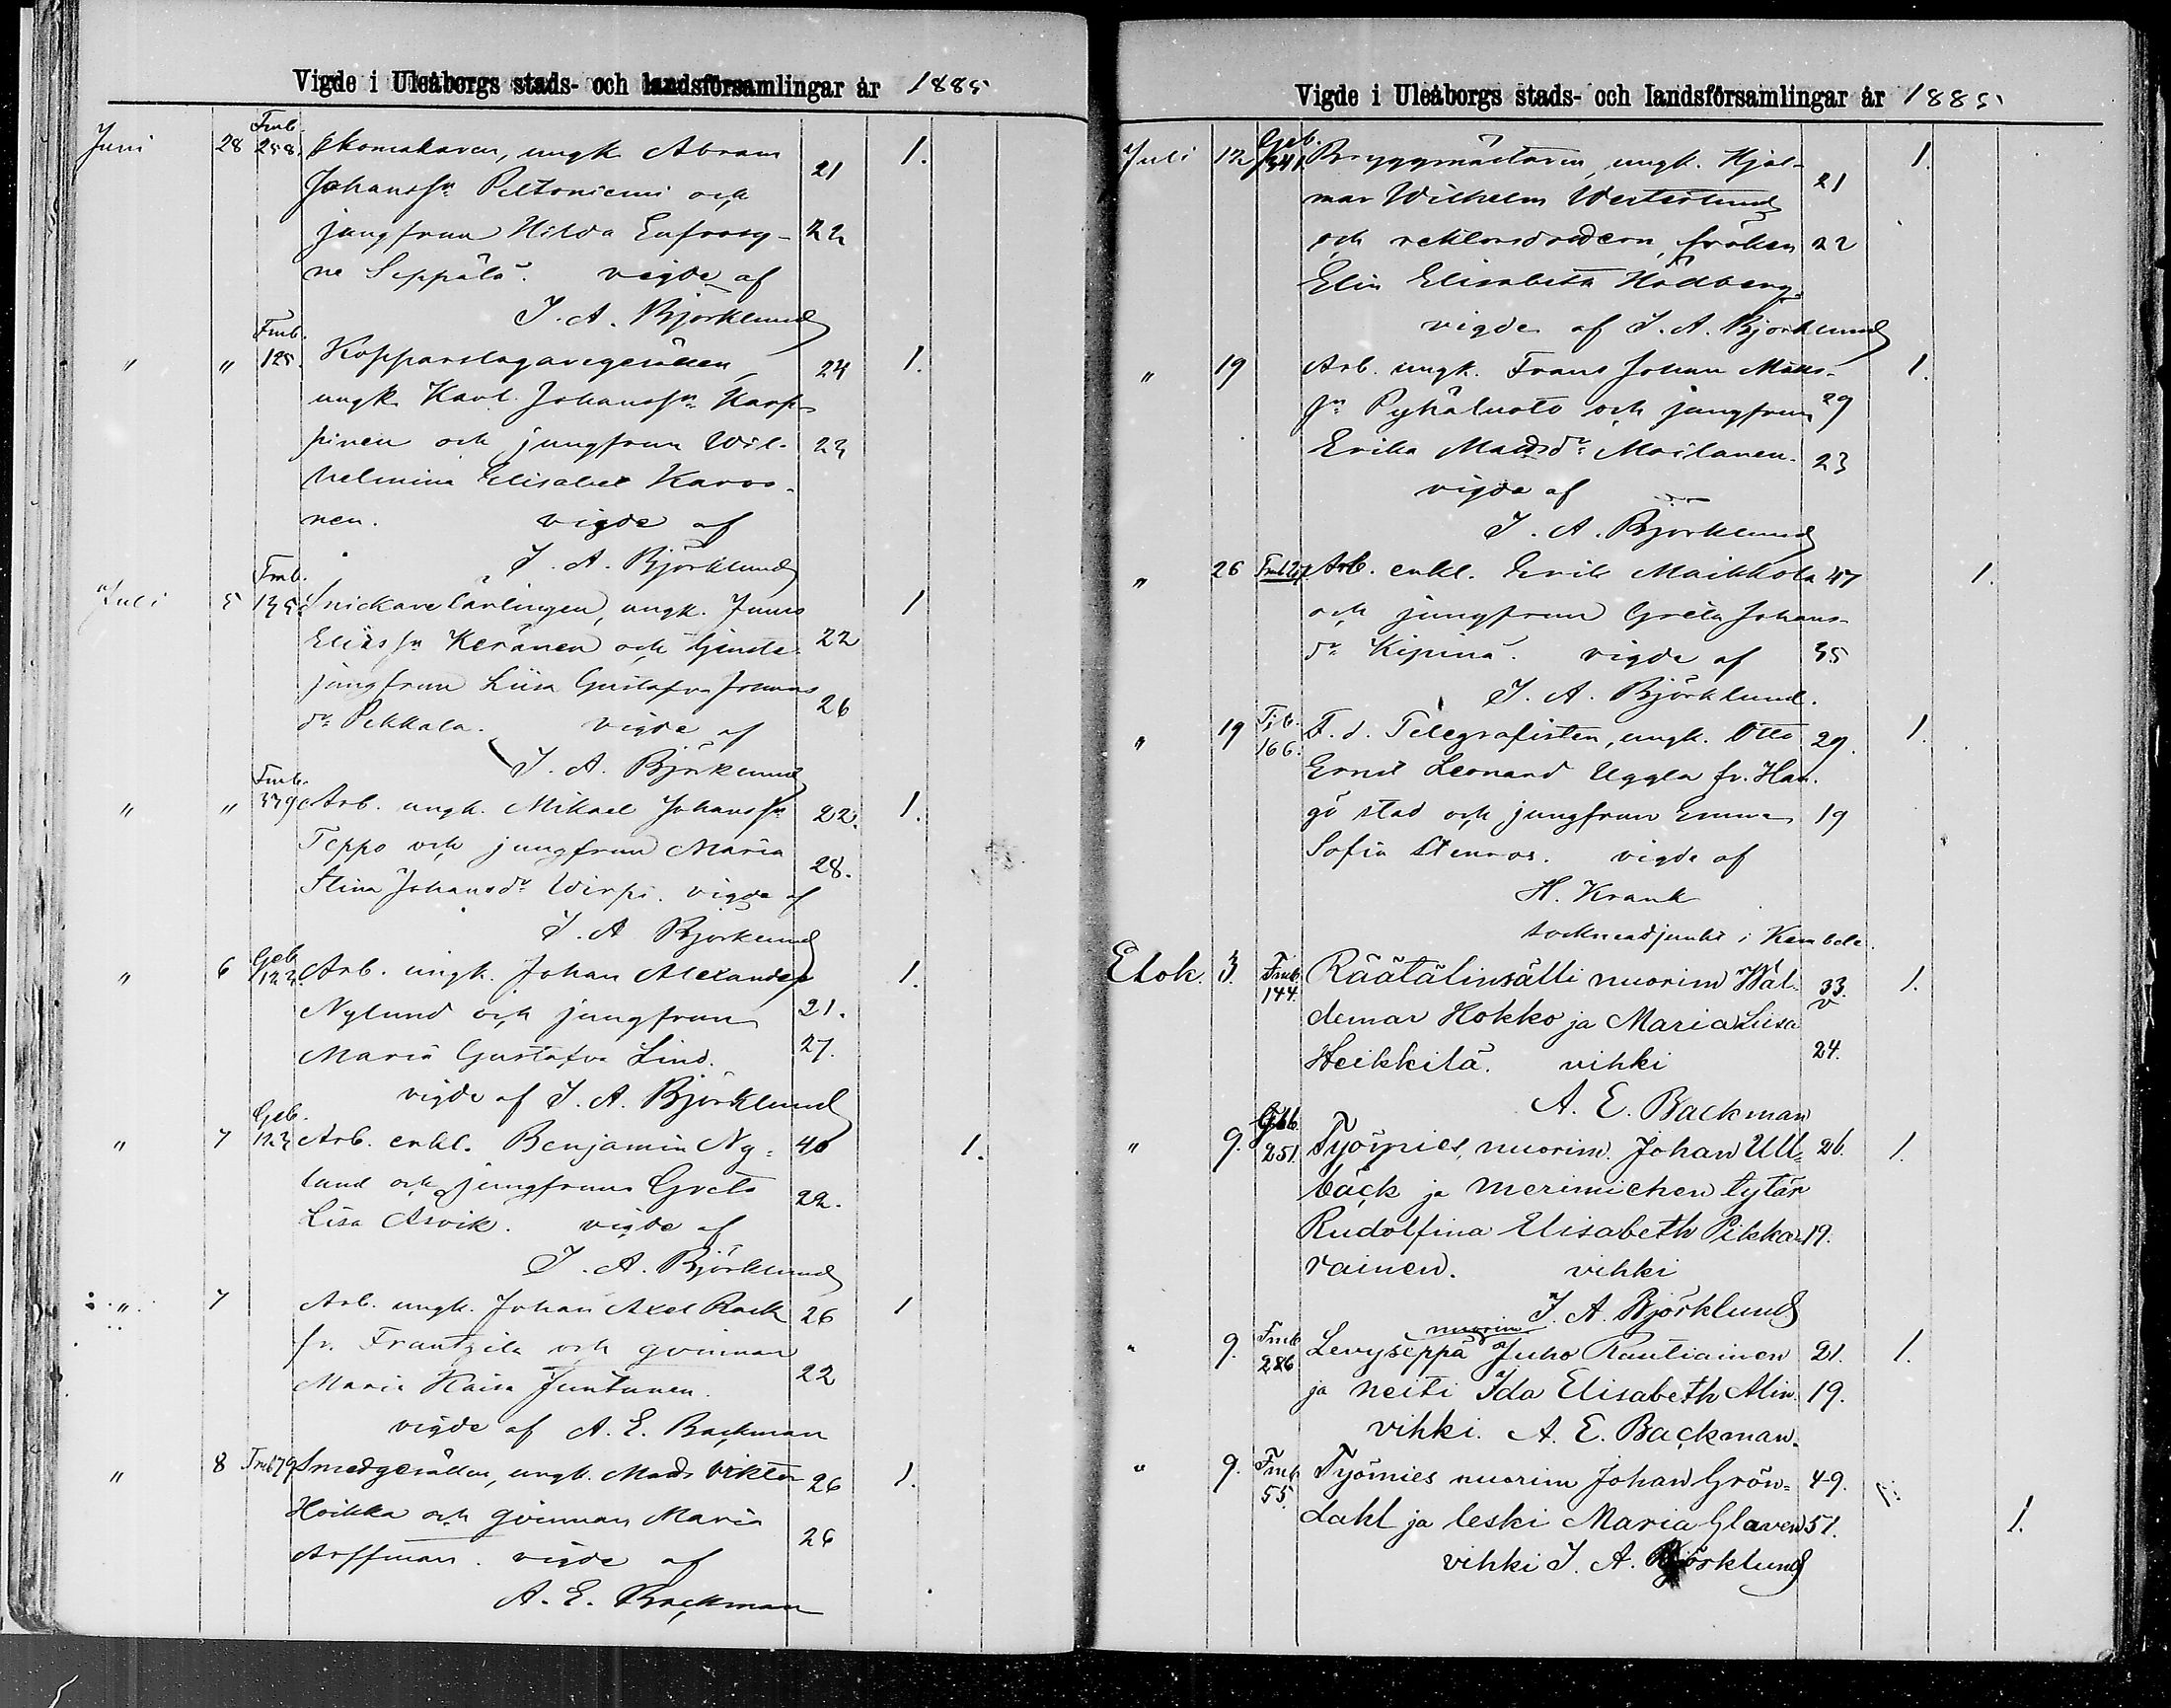 Vigde i Uleåborgs stads- och landsförsamlingar år 1885
Juni 28 Fmb. 258. Skomakaren, ungk. Abram
Johanss:n Peltoniemi och 21 1.
jungfrun Hilda Eufrosy- 22
ne Seppälä. vigde af
J. A. Björklund
" " Fmb. 125. Kopparslagaregesällen, 24 1.
ungk. Karl Johanss:n Karp-
pinen och jungfrun Wil- 23
helmina Elisabet Karvo-
nen. vigde af
J. A. Björklund
Juli 5 Fmb. 135. Snickarelärlingen, ungk. Junus 1
Eliass:n Keränen och tjenste- 22
jungfrun Liisa Gustafva Johans 26
d:r Pekkala. vigde af
J. A. Björklund
" " Fmb. 379 Arb. ungk. Mikael Johanss:n 22. 1.
Teppo och jungfrun Maria 28.
Stina Johansd:r Wirpi. vigde af
J. A Björklund
" 6 Geb. 122. Arb. ungk. Johan Alexander 1.
Nylund och jungfrun 21.
Maria Gustafva Lind. 27.
vigde af J. A. Björklund
" 7 Geb. 123 Arb. enkl. Benjamin Ny- 40 1.
lund och jungfrun Greta 22.
Lisa Asvik. vigde af
J. A. Björklund
" 7 Arb. ungk. Johan Axel Rack 26 1
fr. Frantzila och qvinnan
Maria Kaisa Juntunen. 22
vigde af A. E. Backman
" 8 Fmb 79 Smedgesällen, ungk. Mads Viktor 26 1.
Hoikka och qvinnan Maria 26
Arffman. vigde af
A. E. Backman
Vigde i Uleåborgs stads- och landsförsamlingar år 1885
Juli 12 Geb. 341. Bryggmästaren, ungk. Hjal- 1.
mar Wilhelm Westerlund 21
och rektorsdottern, fröken 22
Elin Elisabeta Hödberg.
vigde af J. A. Björklund
" 19 Arb. ungk. Frans Johan Matts- 1.
s:n Pyhäluoto och jungfrun 29
Erika Madsd:r Moilanen. 23
vigde af
J. A. Björklund
" 26 Arb. enkl. Erik Maikkola 47 1.
och jungfrun Greta Johans-
d:r Kipinä. vigde af 35
J. A. Björklund.
" 19 Tjb. 166. F. d. Telegrafisten, ungk. Otto 29. 1.
Ernst Leonard Uggla fr. Han-
gö stad och jungfrun Emma 19
Sofia Stenroos. vigde af
H. Krank
sockneadjunkt i Kembele.
Elok. 3. Fmb. 144. Räätälinsälli nuorim. Wal- 33. 1.
demar Hokko ja Maria Liisa
Heikkilä. vihki 24.
A. E. Backman
" 9. 251. Työmies, nuorim. Johan Ull- 26. 1.
bäck ja merimiehen tytär
Rudolfina Elisabeth Pikka- 19.
rainen. vihki
J. A. Björklund
" 9. Fmb 286 Levyseppä nuorim. Juho Rautiainen 21. 1.
ja neiti Ida Elisabeth Alin. 19.
vihki. A. E. Backman.
" 9. Fmb 55. Työmies nuorim Johan Grön- 49.
dahl ja leski Maria Glaven 51. 1.
vihki J. A. Björklund